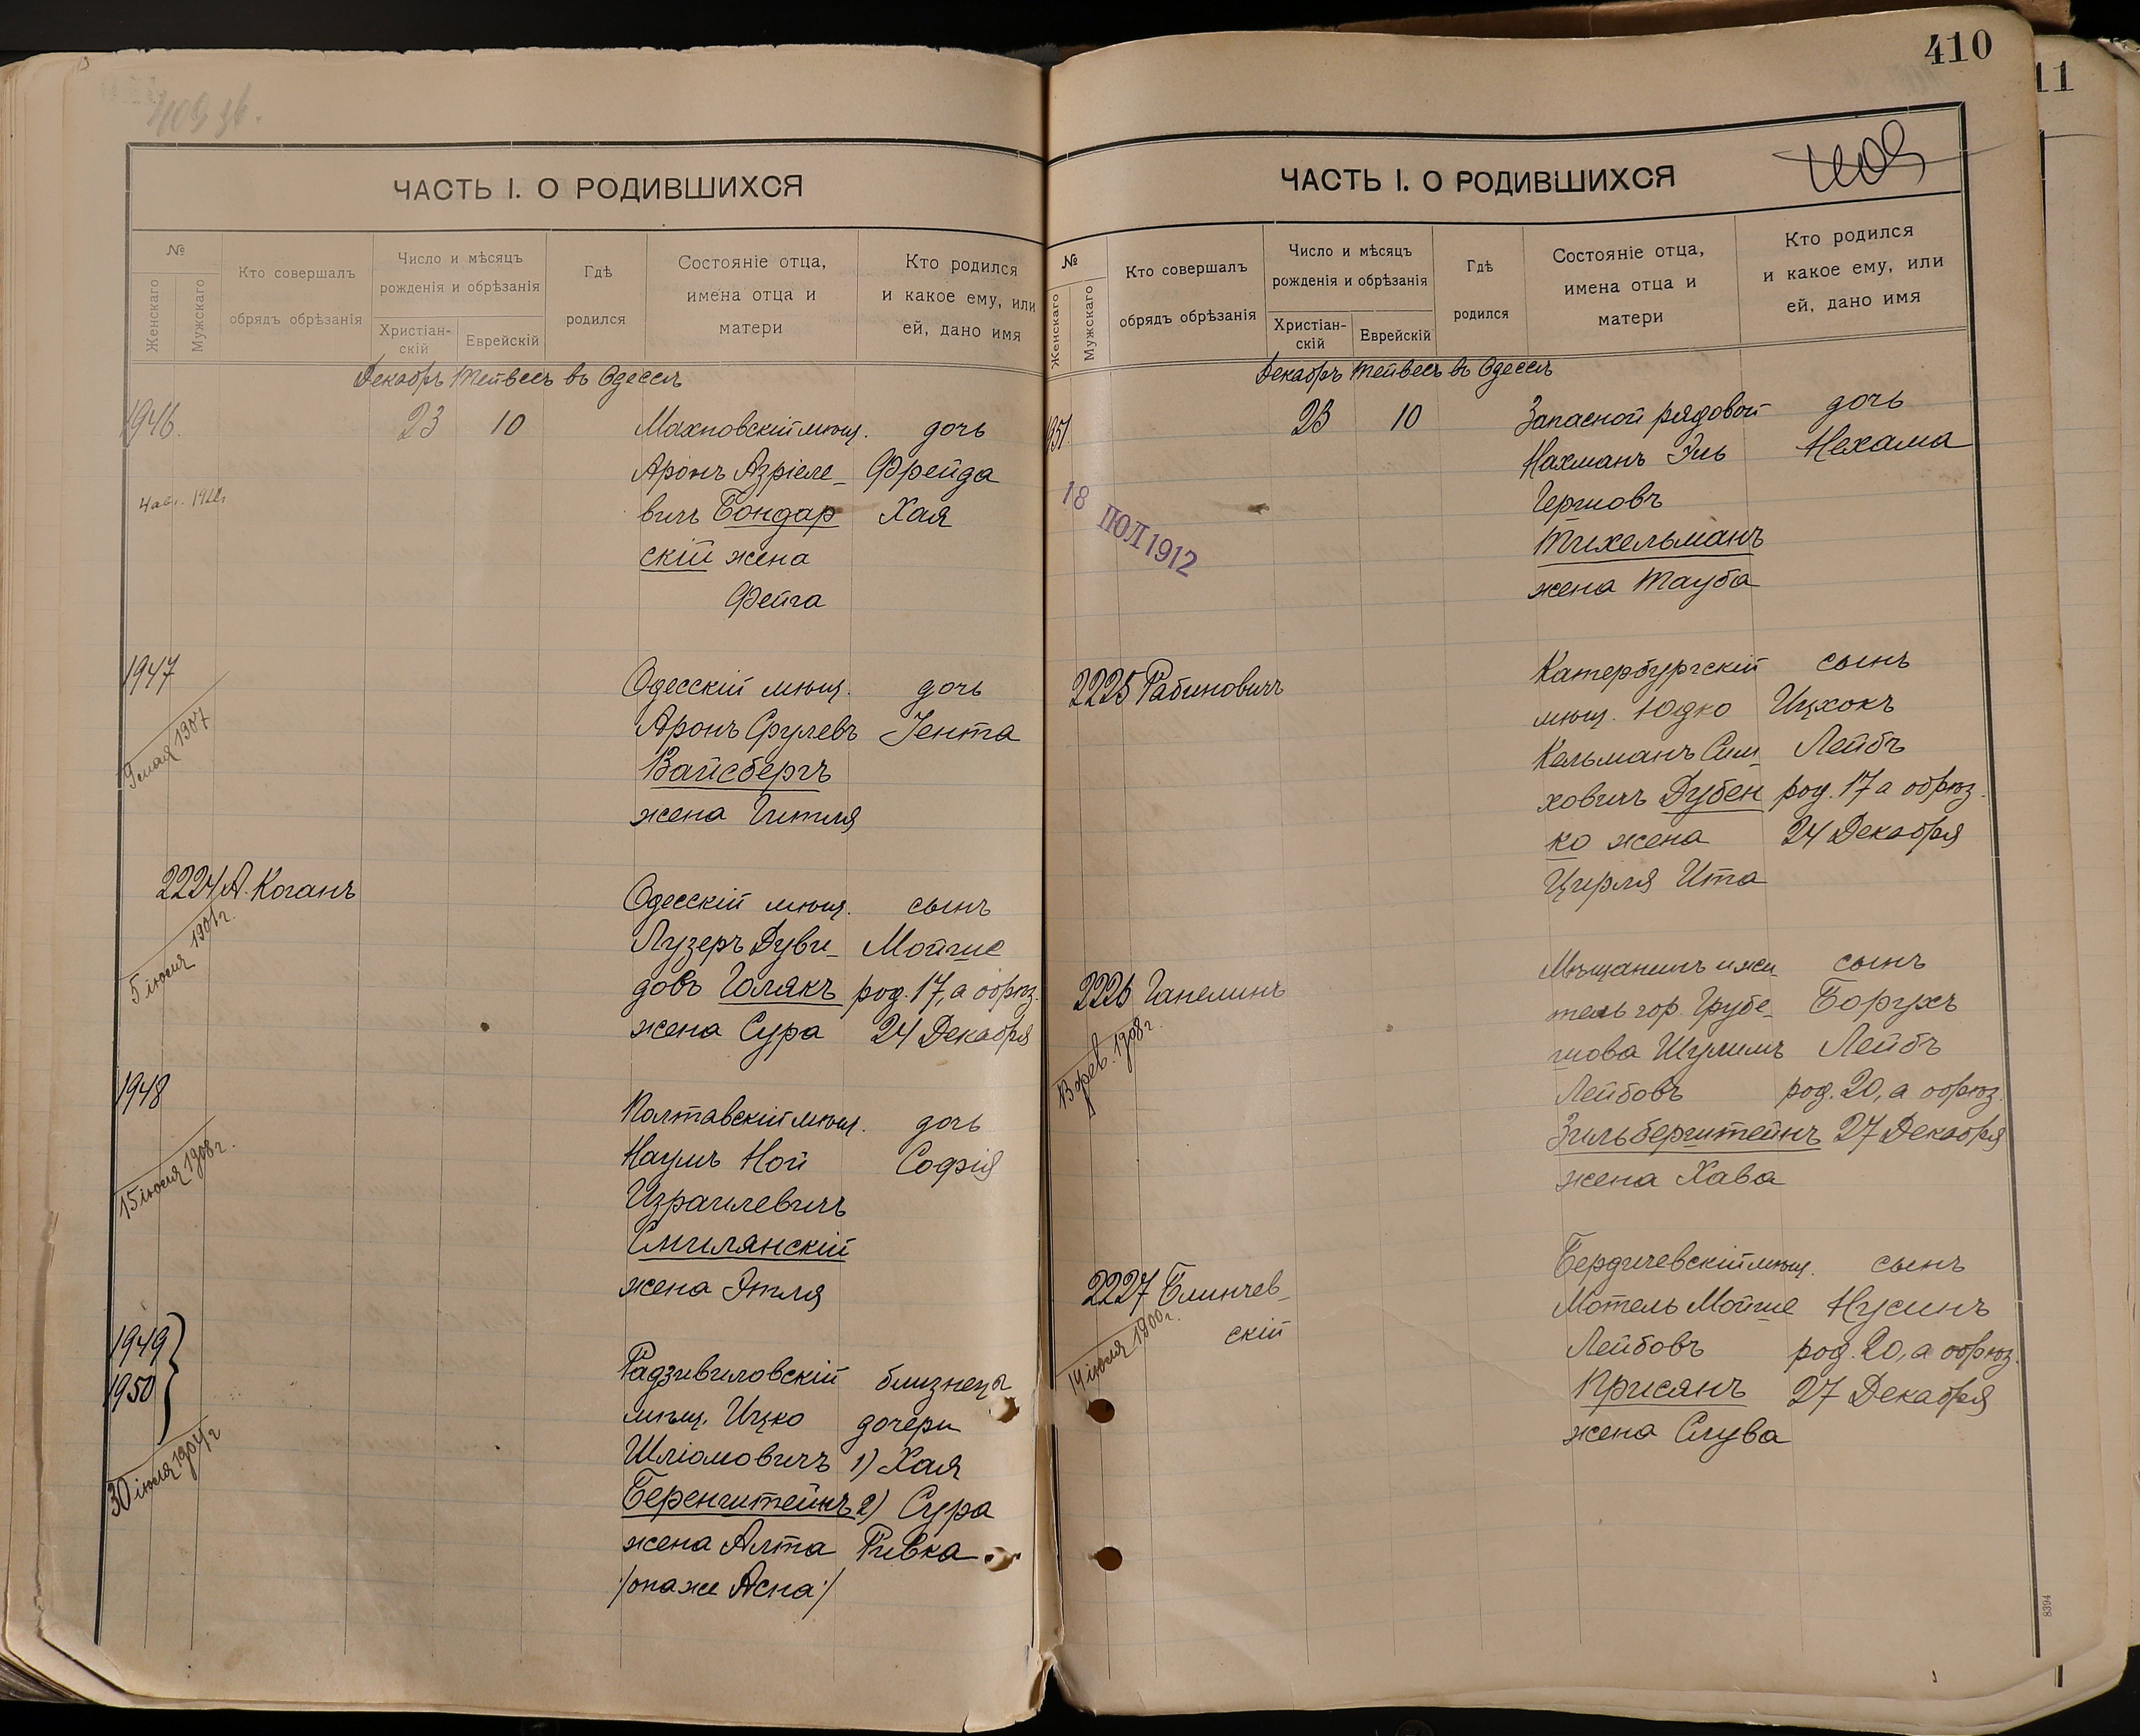 409 об.
ЧАСТЬ I. О РОДИВШИХСЯ
№
Женскаго
Мужскаго
Кто совершалъ
обрядъ обрѣзанія
Число и мѣсяцъ
рожденія и обрѣзанія
Христіан-
скій
Еврейскій
Гдѣ
родился
Состояніе отца,
имена отца и
матери
Кто родился
и какое ему, или
ей, дано имя
Декабрь Тейвесъ въ Одессѣ
1946. 23 10 Махновскій мѣщ. дочь
Аронъ Азріеле- Фрейда
вичъ Бондар Хая
скій жена
Фейга
1947 Одесскій мѣщ. дочь
Аронъ Срулевъ Іента
Вайсбергъ
жена Гитля
9 мая 1907
2224 А. Коганъ Одесскій мѣщ. сынъ
Лузеръ Дуви- Мойше
довъ Голякъ род. 17, а обрѣз.
жена Сура 24 Декабря
1948 Полтавскій мѣщ. дочь
Наумъ Ной Софія
Израилевичъ
Смилянскій
жена Этля
15 іюля 1908 г.
1949
1950
Радзивиловскій близнецы
мѣщ. Ицко дочери
Шліомовичъ 1) Хая
Беренштейнъ 2) Сура
жена Алта Ривка
/:она же Асна:/
30 іюля 1904 г
410
11
ЧАСТЬ I. О РОДИВШИХСЯ
№
Женскаго
Мужскаго
Кто совершалъ
обрядъ обрѣзанія
Число и мѣсяцъ
рожденія и обрѣзанія
Христіан-
скій
Еврейскій
Гдѣ
родился
Состояніе отца,
имена отца и
матери
Кто родился
и какое ему, или
ей, дано имя
Декабрь Тейвесъ въ Одессѣ
1951. 23 10 Запасной рядовой дочь
Нахманъ Эль Нехама
Гершовъ
Тихельманъ
жена Тауба
18 ІЮЛ 1912
2225 Рабиновичъ Катербургскій сынъ
мѣщ. Юдко Ицхокъ
Кельманъ Сим- Лейбъ
ховичъ Дубен род. 17 а обрѣз.
ко жена 24 Декабря
Цирля Ита
2226 Ганелинъ Мѣщанинъ и жи- сынъ
тель гор. Грубе- Борухъ
шова Шулимъ Лейбъ
Лейбовъ род. 20, а обрѣз.
Зильберштейнъ 27 Декабря
жена Хава
2227 Блинчев- Бердичевскій мѣщ. сынъ
скій Мотель Мойше Нусинъ
Лейбовъ род. 20, а обрѣз.
Присянъ 27 Декабря
жена Слува
14 іюля 1900 г.
8394